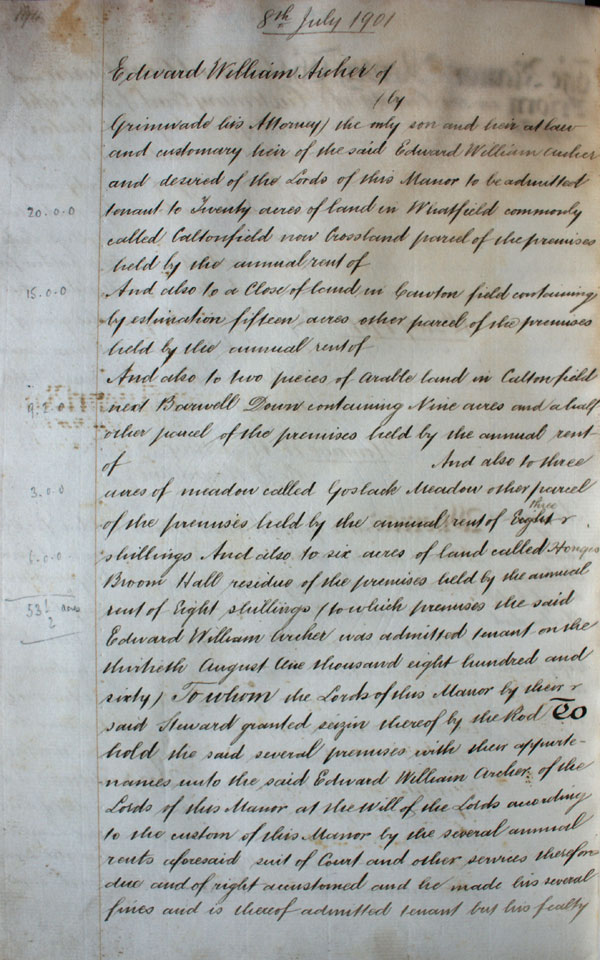 8th July 1901
Edward William Archer of
(by
Grimwade his Attorney) the only son and heir at law
and customary heir of the said Edward William Archer
and desired of the Lords of this Manor to be admitted
20.0.0 tenant to Twenty acres of land in Wratfield commonly
called Caltonfield now Crossland parcel of the premises
held by the annual rent of
15.0.0 And also to a Close of land in Cawton field containing
by estimation fifteen acres other parcel of the premises
held by the annual rent of
And also to two pieces of arable land in Caltonfield
9.2.0 next Barwell Down containing Nine acres and a half
other parcel of the premises held by the annual rent
of And also to three
3.0.0 acres of meadow called Goslack Meadow other parcel
of the premises held by the annual rent of Eight three
6.0.0 shillings And also to six acres of land called Honges
Broom Hall residue of the premises held by the annual
53 1/2 acres rent of Eight shillings (to which premises the said
Edward William Archer was admitted tenant on the
thirtieth August One thousand eight hundred and
sixty) To whom the Lords of this Manor by their
said Steward granted seizin thereof by the Rod To
hold the said several premises with their appurte-
nances unto the said Edward William Archer of the
Lords of this Manor at the Will of the Lords according
to the custom of this Manor by the several annual
rents aforesaid suit of Court and other services therefor
due and of right accustomed and he made his several
fines and is thereof admitted tenant but his fealty